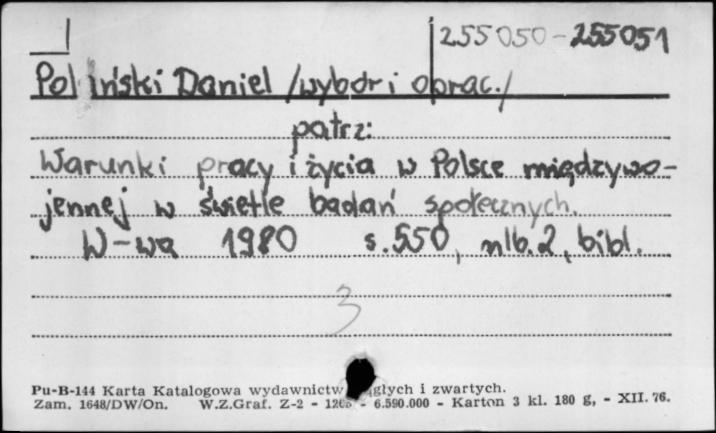 255050-255051
Poliński Daniel /wybór i oprac./
patrz:
Warunki pracy i życia w Polsce międzywo-
jennej w świetle badań społecznych.
W-wa 1980 s.550, nlb.2, bibl.
3
Pu-B-144 Karta Katalogowa wydawnictw i zwartych.
Zam. 1648/DW/On. W.Z.Graf. Z-2 - 6.590.000 - Karton 3 kl. 180 g, - XII. 76.